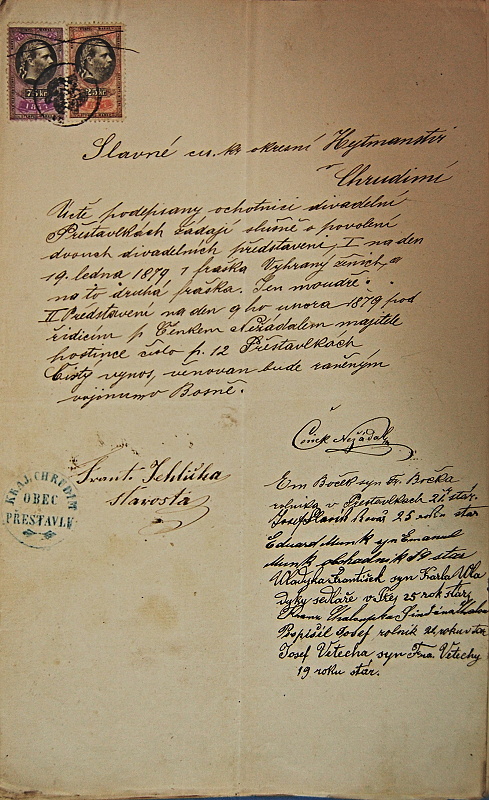 75 kr.
25 kr.
Slavné cís. kr. okresní Hejtmanství
v
Chrudimi
Uctě podepsaný ochotníci divadelní
Přestavlkách žádají slušně o povolení
dvouch divadelních představení, I na den
19. ledna 1879 1 fraška Vybraný ženich, a
na to druhá fraška. Jen moudře.
II Představení na den 9ho unora 1879 pod
řidícím p. Čenkem Nežádalem majitele
hostince číslo p. 12 Přestavlkach
Čistý výnos, věnovan bude raněným
vojínum v Bosně.
Čeněk Nežádal
Frant. Jehlička
starosta
KRAJ CHRUDIM
OBEC
PŘESTAVLK
Em Boček syn Fr. Bočka
rolníka v Přestavlkách 21 stár.
Josef 25 roku stár
Eduard Munk syn Emanuel
Munk obchodník stár
Wladyka František syn Karla Wla
dyky sedláře v Přes 25 rok stár,
Franz Chalupka
Pospíšil Josef rolník 21 roku stár
Josef Vetecha syn Fra. Vetechy
19 roku stár.